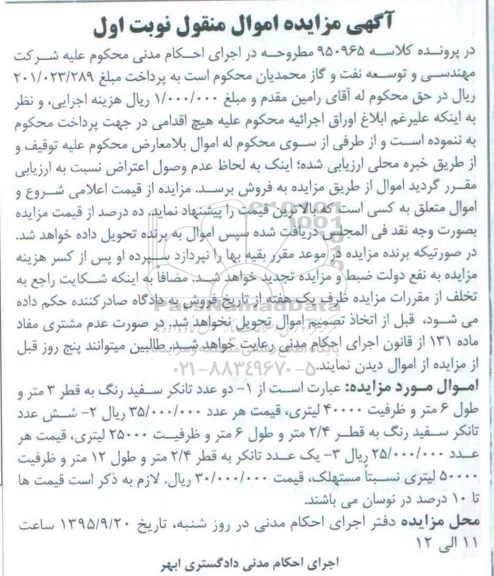 آگهی مزایده اموال منقول نوبت اول
در پرونده کلاسه ۹۵۰۹۶۵ مطروحه در اجرای احکام مدنی محکوم علیه شرکت
مهندسی و توسعه نفت و گاز محمدیان محکوم است به پرداخت مبلغ ۲۰۱/۰۲۳/۲۸۹
ریال در حق محکوم له آقای رامین مقدم و مبلغ ۱/۰۰۰/۰۰۰ ریال هزینه اجرایی، و نظر
به اینکه علیرغم ابلاغ اوراق اجرائیه محکوم علیه هیچ اقدامی در جهت پرداخت محکوم
به ننموده است و از طرفی از سوی محکوم له اموال بلامعارض محکوم علیه توقیف و
از طریق خبره محلی ارزیابی شده؛ اینک به لحاظ عدم وصول اعتراض نسبت به ارزیابی
مقرر گردید اموال از طریق مزایده به فروش برسد. مزایده از قیمت اعلامی شروع و
اموال متعلق به کسی است که بالاترین قیمت را پیشنهاد نماید. ده درصد از قیمت مزایده
بصورت وجه نقد فی المجلس دریافت شده سپس اموال به برنده تحویل داده خواهد شد.
در صورتیکه برنده مزایده در موعد مقرر بقیه بها را نپردازد سپرده او پس از کسر هزینه
مزایده به نفع دولت ضبط و مزایده تجدید خواهد شد. مضافاً به اینکه شکایت راجع به
تخلف از مقررات مزایده ظرف یک هفته از تاریخ فروش به دادگاه صادرکننده حکم داده
می شود، قبل از اتخاذ تصمیم اموال تحویل نخواهد شد. در صورت عدم مشتری مفاد
ماده ۱۳۱ از قانون اجرای احکام مدنی رعایت خواهد شد. طالبین میتوانند پنج روز قبل
از مزایده از اموال دیدن نمایند.
۰۲۱-۸۸۳۴۹۶۷۰-۵
اموال مورد مزایده: عبارت است از ۱- دو عدد تانکر سفید رنگ به قطر ۳ متر و
طول ۶ متر و ظرفیت ۴۰۰۰۰ لیتری، قیمت هر عدد ۳۵/۰۰۰/۰۰۰ ریال ۲- شش عدد
تانکر سفید رنگ به قطر ۲/۴ متر و طول ۶ متر و ظرفیت ۲۵۰۰۰ لیتری، قیمت هر
عدد ۲۵/۰۰۰/۰۰۰ ریال ۳- یک عدد تانکر به قطر ۲/۴ متر و طول ۱۲ متر و ظرفیت
۵۰۰۰۰ لیتری نسبتاً مستهلک، قیمت ۳۰/۰۰۰/۰۰۰ ریال. لازم به ذکر است قیمت ها
تا ۱۰ درصد در نوسان می باشند.
محل مزایده دفتر اجرای احکام مدنی در روز شنبه، تاریخ ۱۳۹۵/۹/۲۰ ساعت
۱۱ الی ۱۲
اجرای احکام مدنی دادگستری ابهر